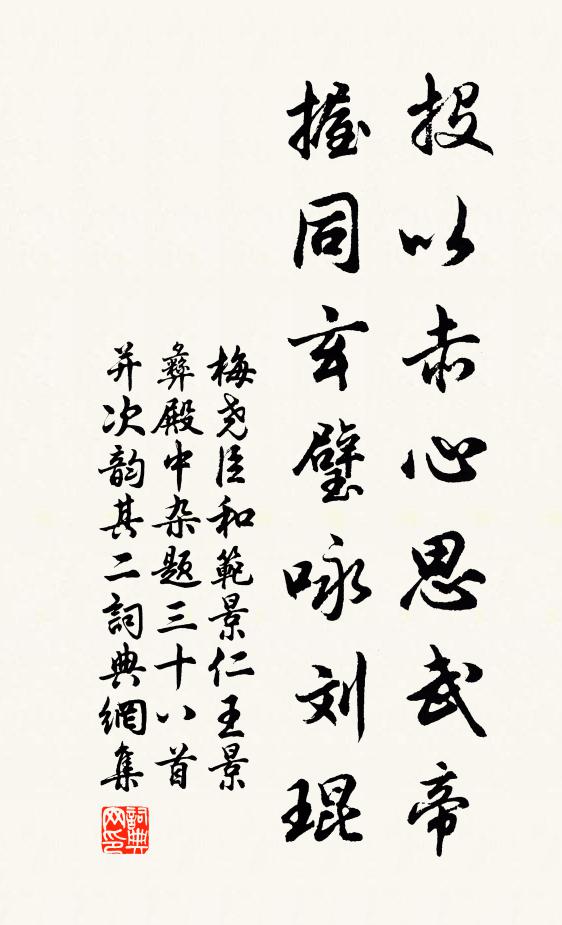 投以赤心思武帝
握同玄璧咏刘琨
梅尧臣和範景仁王景
彝殿中杂题三十八首
并次韵其二詞典網集
詞典网印